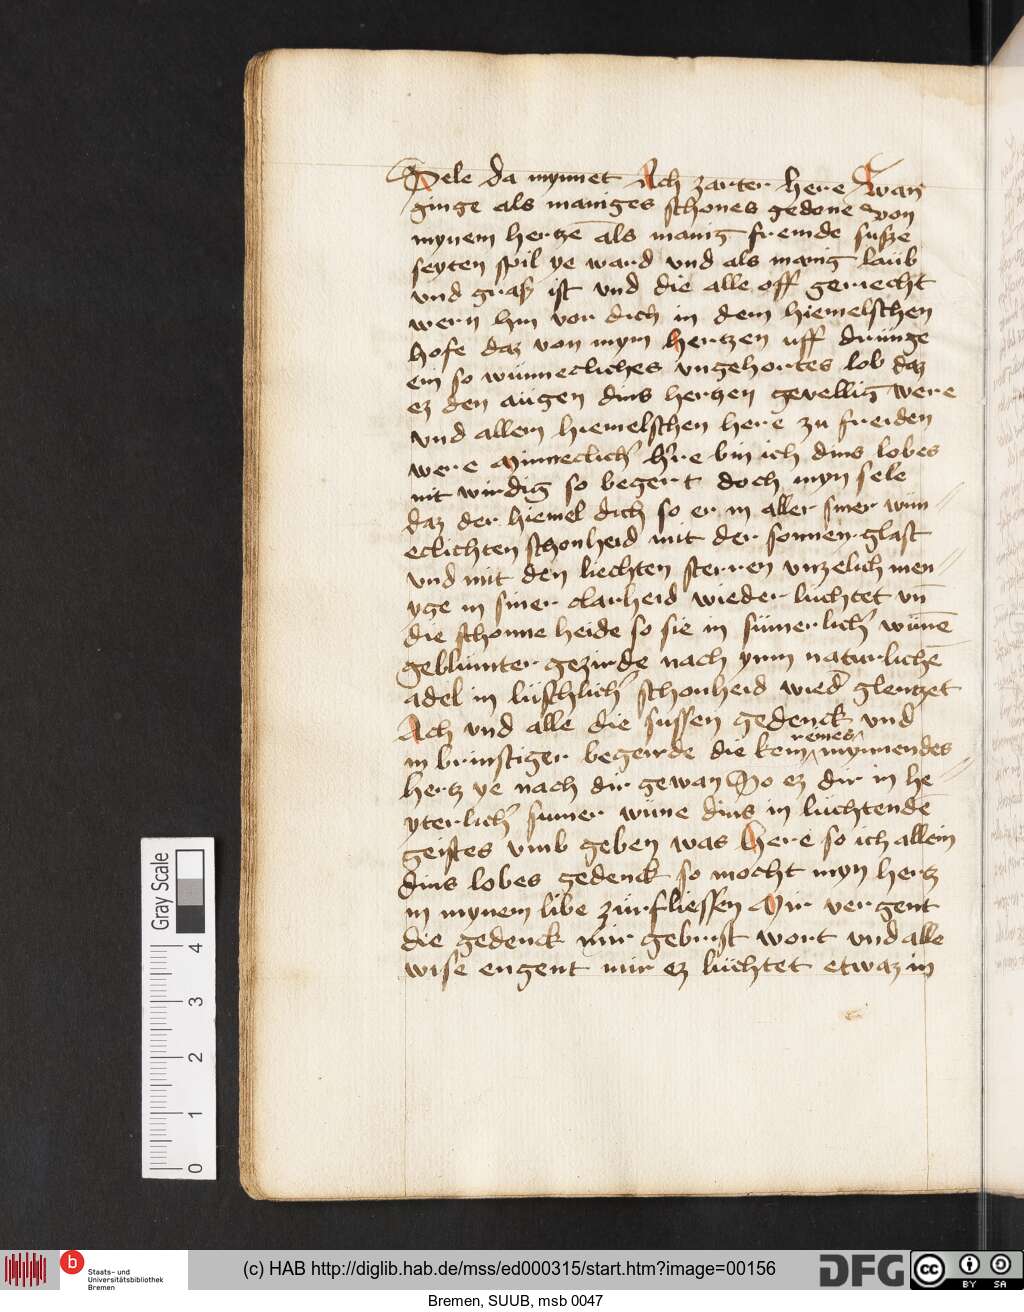 Sele da mynnet Ach zarter here Swan
ginge als maniges schones gedone von
mynem hertzē als manig fremde susze
seyten spil ye ward vnd als manig laub
vnd graß ist vnd die alle off geriecht
wern hin vor dich in dem hiemelschen
hofe daz von mym hertzen uff drünge
ein so wünnecliches vngehortes lob daz
ez den augen dins hertzen gevellig were
vnd allem hiemelschen here zu freiden
were Minneclichˀ hˀre bin ich dins lobes
nit wirdig so begert doch myn sele
daz der hiemel dich so er in aller siner wün//
eclichten schonheid mit der sonnen glast
vnd mit den liechten sterren vnzelich men//
yge in siner clarheid wieder lüchtet vn̄
die schonne heide so sie in sümerlichˀ wünē
geblümter gezirde nach ynm naturlichē
adel in lüschlichˀ schonheid wiedˀ glentzet
Ach vnd alle die sussen gedenck vnd
in brinstiger begeirde die kein reines mynnendes
hertz ye nach dir gewan So ez dir in he//
yterlichˀ sumer wüne dins in lüchtendē
geistes vmb geben was here so ich allein
dins lobes gedenck so mocht myn hertz
in mynem libe zürfliessen Mir vergent
die gedenck mir gebrist wort vnd alle
wise engent mir ez lüchtet etwaz in
Gray Scale
0 1 2 3 4
b Staats- und
Universitätsbibliothek
Bremen
(c) HAB http://diglib.hab.de/mss/ed000315/start.htm?image=00156
DFG
cc BY SA
Bremen, SUUB, msb 0047